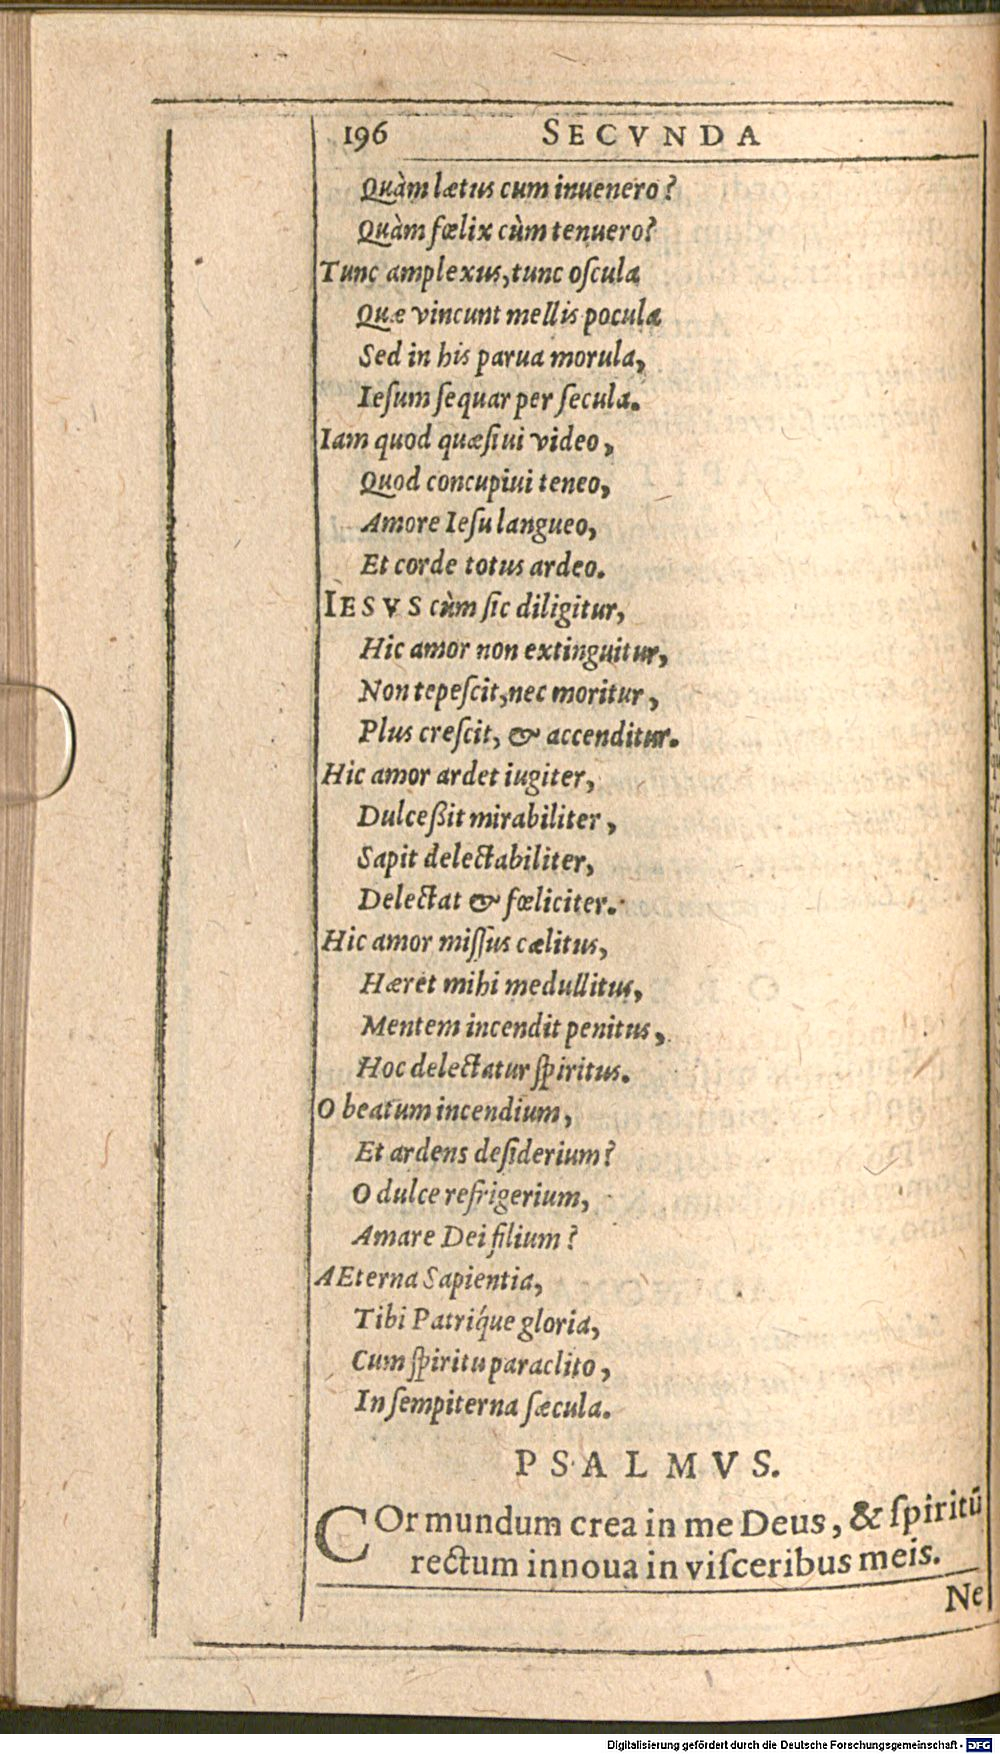 196 SECVNDA
Quàm lætus cum inuenero?
Quàm fœlix cùm tenuero?
Tunc amplexus, tunc oſcula
Quæ vincunt mellis pocula
Sed in his parua morula,
Ieſum ſequar per ſecula.
Iam quod quæſiui video,
Quod concupiui teneo,
Amore Ieſu langueo,
Et corde totus ardeo.
IESVS cùm ſic diligitur,
Hic amor non extinguitur,
Non tepeſcit, nec moritur,
Plus creſcit, & accenditur.
Hic amor ardet iugiter,
Dulceßit mirabiliter,
Sapit delectabiliter,
Delectat & fœliciter.
Hic amor miſſus cælitus,
Hæret mihi medullitus,
Mentem incendit penitus,
Hoc delectatur ſpiritus.
O beatum incendium,
Et ardens deſiderium?
O dulce refrigerium,
Amare Dei filium?
AEterna Sapientia,
Tibi Patriq́ue gloria,
Cum ſpiritu paraclito,
In ſempiterna ſæcula.
PSALMVS.
COr mundum crea in me Deus, & ſpiritũ
rectum innoua in viſceribus meis.
Ne
Digitalisierung gefördert durch die Deutsche Forschungsgemeinschaft - DFG